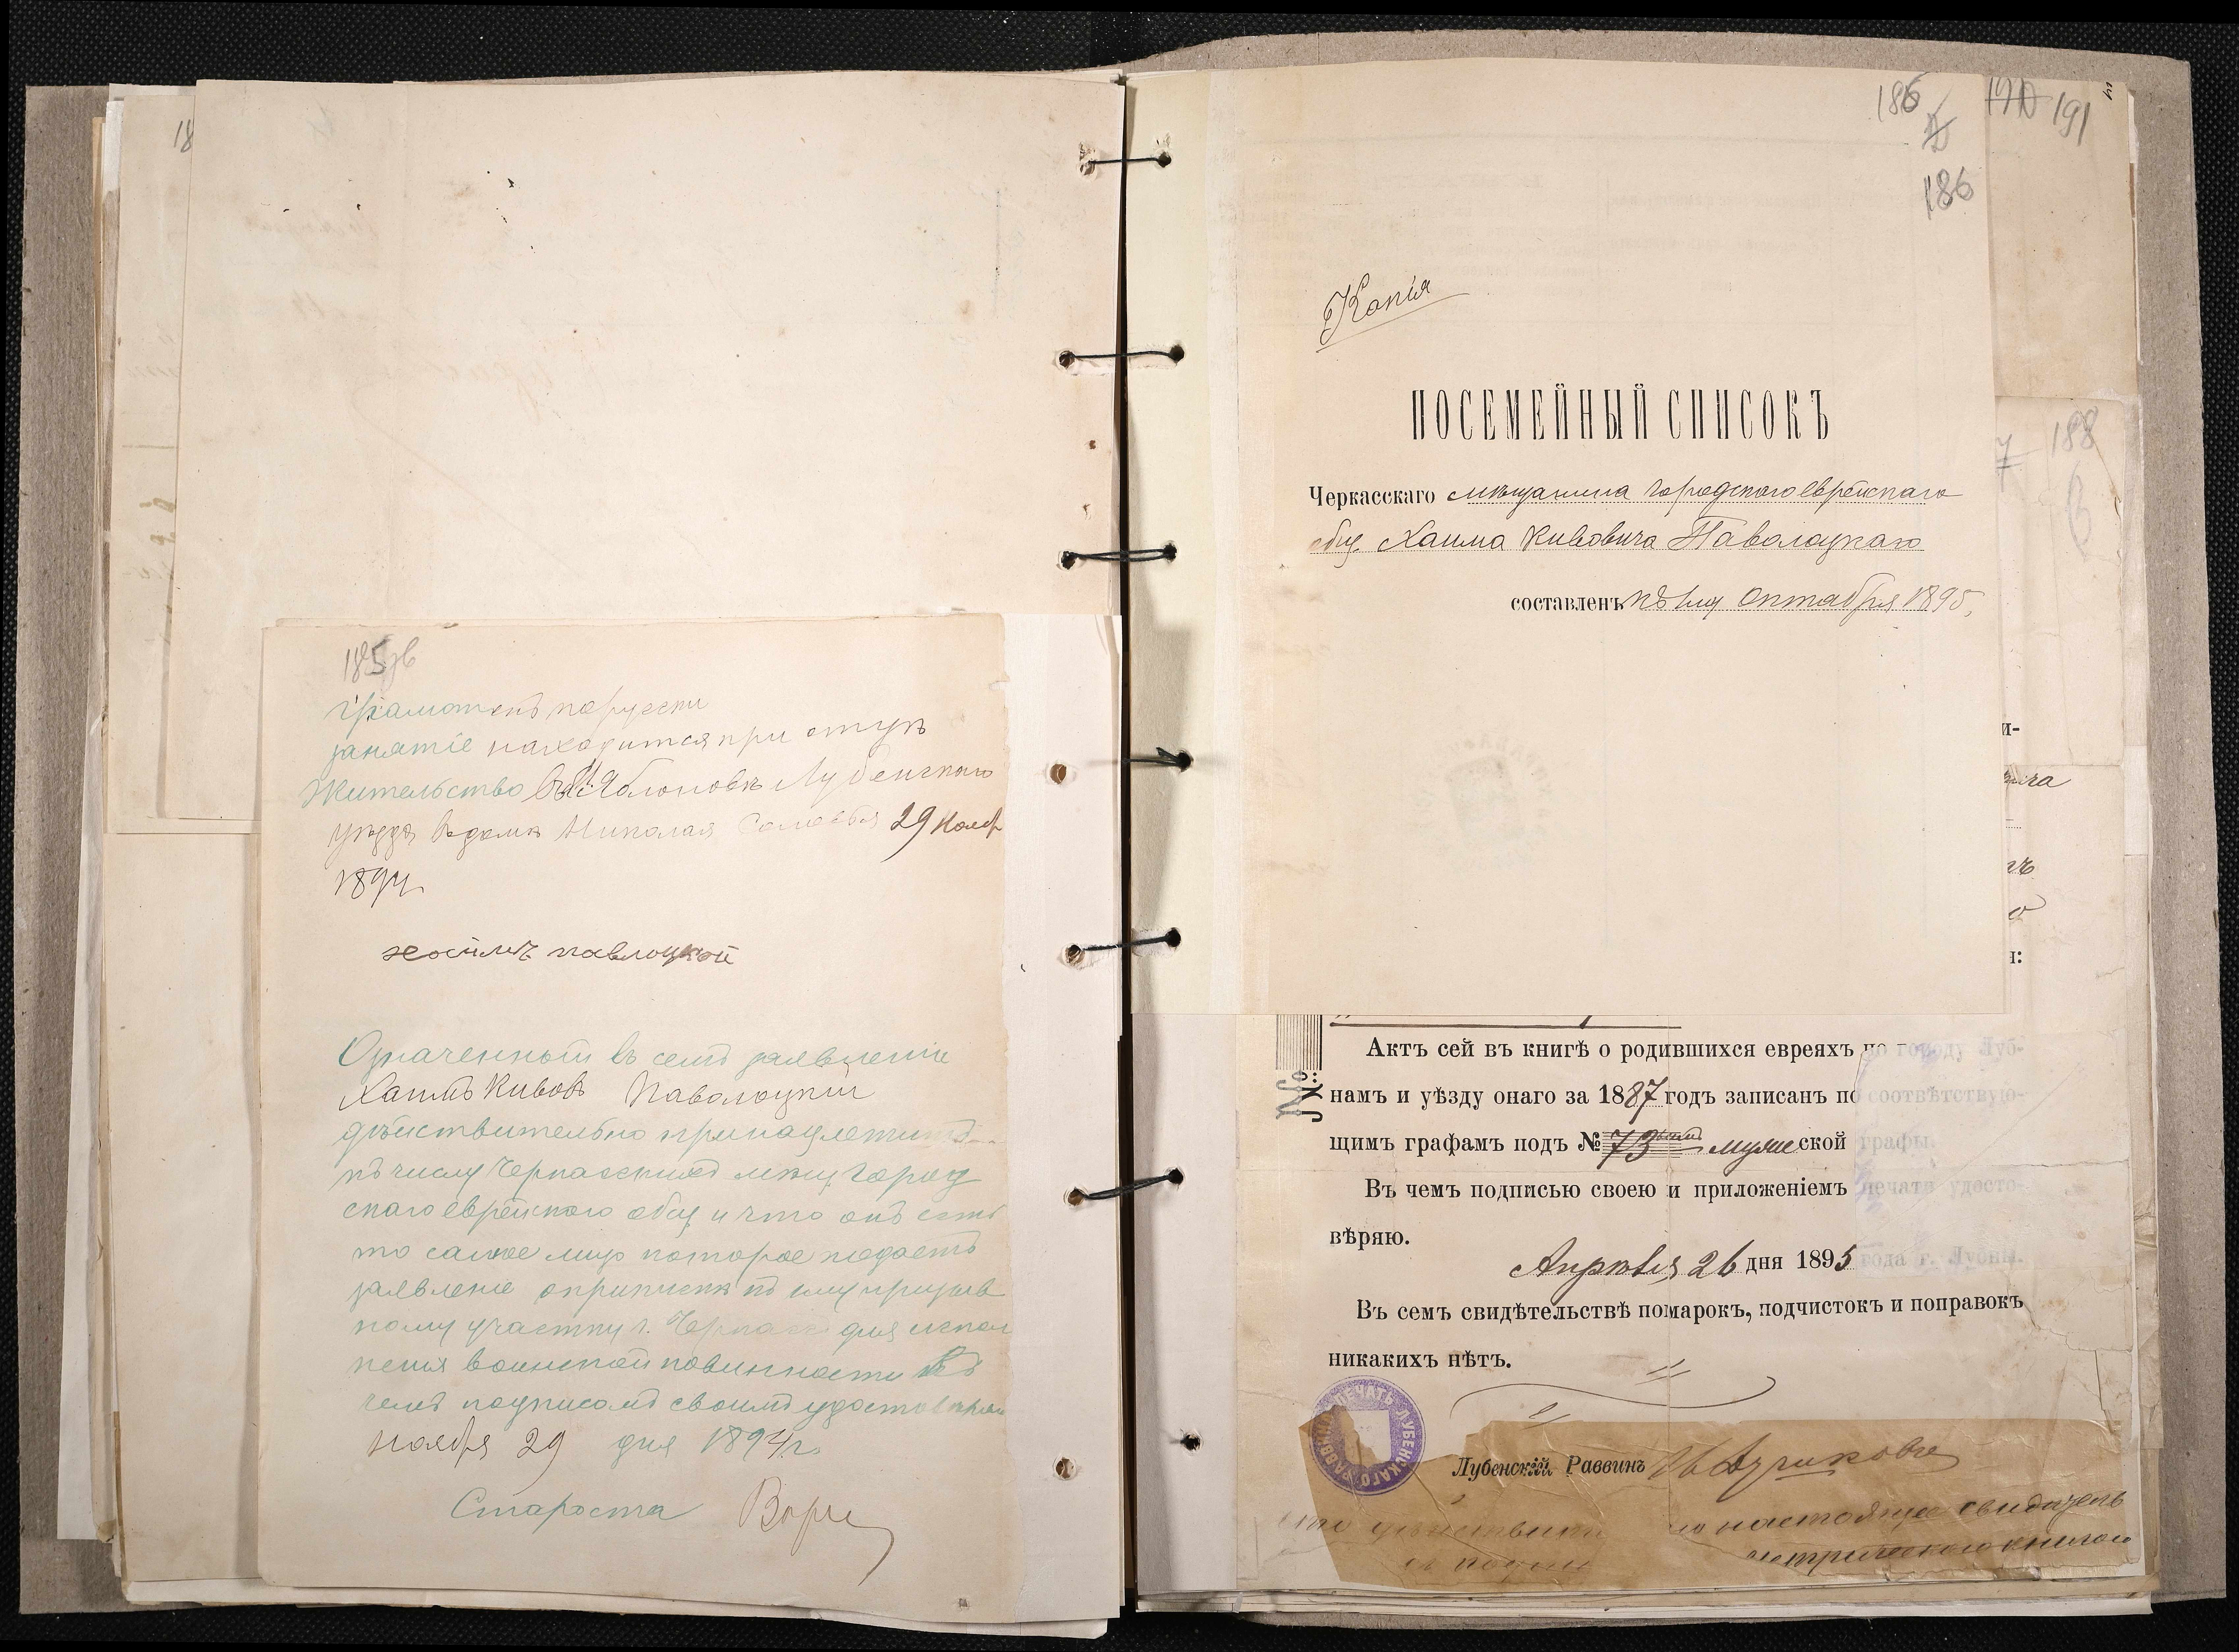 18
185 зв
Грамотенъ по русски
занятіе находится при отцѣ
Жительство въ Яблоновкѣ Лубенскаго
уѣзда въ домѣ Николая 29 Нояб
1894
хаимъ павлоцкой
Означенный въ семъ заявленіи
Хаимъ Кивовъ Паволоцкій
дѣйствительно принадлежитъ
къ числу Черкасскихъ мѣщ. город
скаго еврейскаго общ и что онъ есть
то самое лицо которое подаетъ
заявленіе о припискѣ къ призыв
ному участку г. Черкассъ для испол
ненія воинской повинности въ
чемъ подписомъ своимъ удостовѣряю
Ноября 29 дня 1894 г.
Староста
186
186
190 191
Копія
ПОСЕМЕЙНЫЙ СПИСОКЪ
Черкасскаго мѣщанина городского еврейскаго
общ. Хаима Кивовича Паволоцкаго
составленъ къ 1му Октября 1895,
188
7
и-
ича
гъ
о
я:
№:
Актъ сей въ книгѣ о родившихся евреяхъ по городу Луб-
намъ и уѣзду онаго за 1887 годъ записанъ по соотвѣтствую-
щимъ графамъ подъ № 73 мужеской графы.
Въ чемъ подписью своею и приложеніемъ печати удосто-
вѣряю.
Апрѣля 26 дня 1895 года г. Лубны.
Въ семъ свидѣтельствѣ помарокъ, подчистокъ и поправокъ
никакихъ нѣтъ.
ПЕЧАТЬ ЛУБЕНСКАГО РАВВИНА
Лубенскій Раввинъ
что настоящее свидѣтель
метрическою книгою